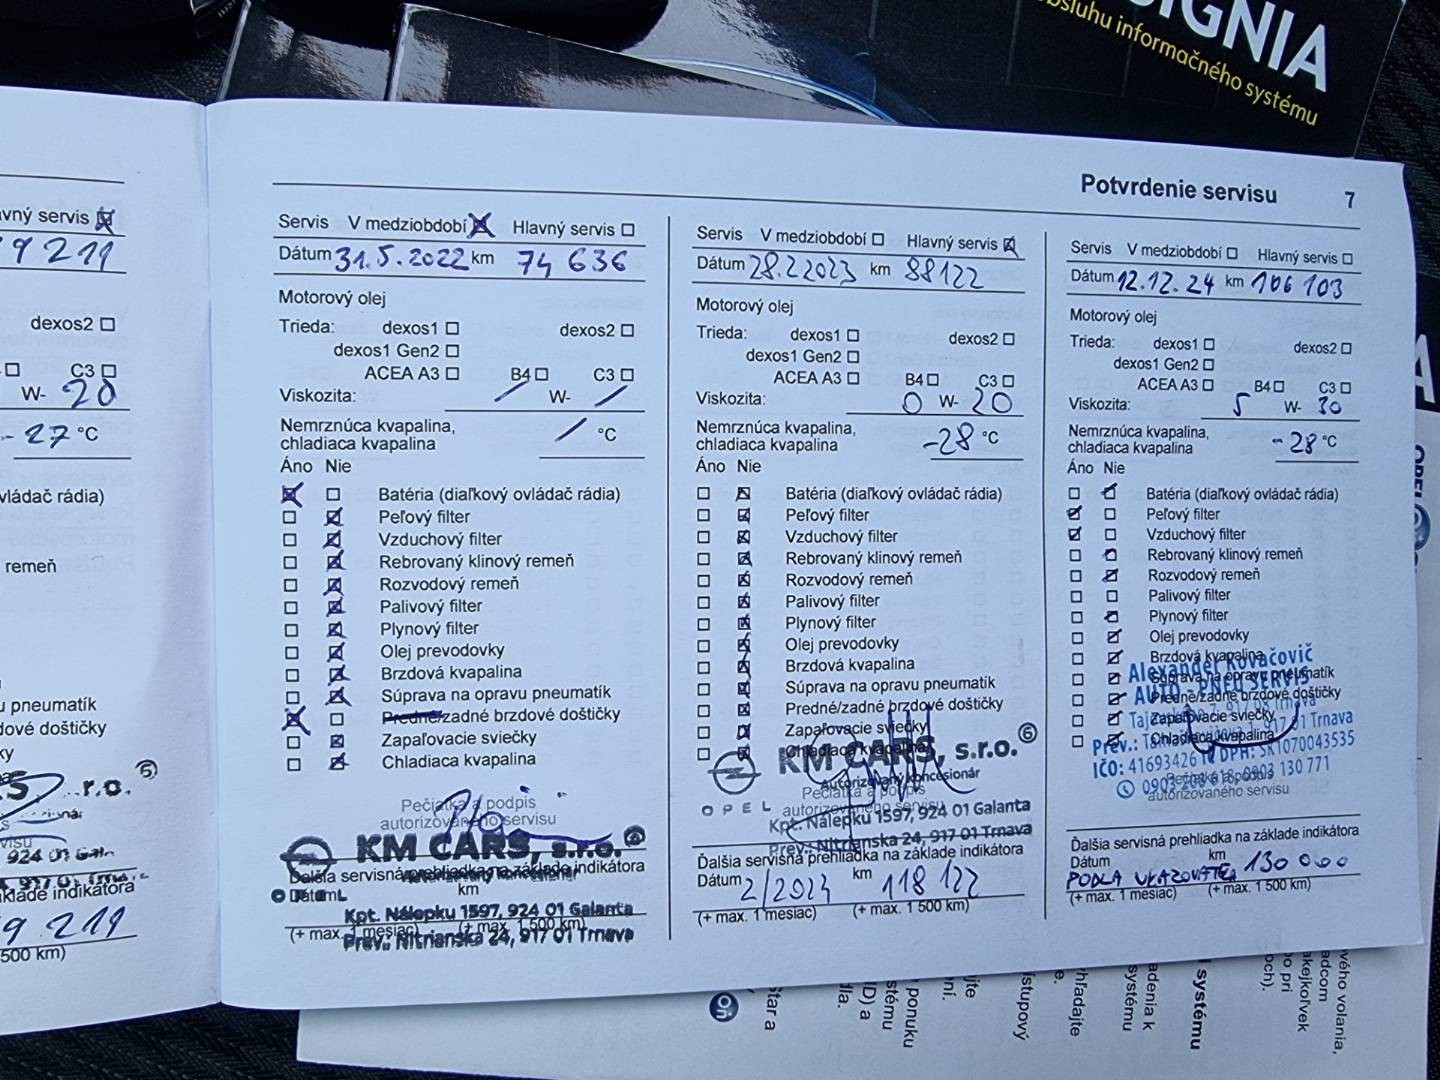 SIGNIA
obsluhu informačného systému
Potvrdenie servisu 7
avný servis
9 211
dexos2
C3
W- 20
-27 °C
ovládač rádia)
remeň
u pneumatík
dové doštičky
ky
r.o.
924 01 Gala
917 01 Trnava
klade indikátora
9 211
500 km)
Servis V medziobdobí Hlavný servis
Dátum 31.5.2022 km 74 636
Motorový olej
Trieda: dexos1 dexos2
dexos1 Gen2
ACEA A3 B4 C3
Viskozita: / W- /
Nemrznúca kvapalina,
chladiaca kvapalina / °C
Áno Nie
Batéria (diaľkový ovládač rádia)
Peľový filter
Vzduchový filter
Rebrovaný klinový remeň
Rozvodový remeň
Palivový filter
Plynový filter
Olej prevodovky
Brzdová kvapalina
Súprava na opravu pneumatík
Predné/zadné brzdové doštičky
Zapaľovacie sviečky
Chladiaca kvapalina
Pečiatka a podpis
autorizovaného servisu
KM CARS, s.r.o.
Ďalšia servisná prehliadka na základe indikátora
Dátum km
Kpt. Nálepku 1597, 924 01 Galanta
(+ max. 1 mesiac) (+ max. 1 500 km)
Prev.: Nitrianska 24, 917 01 Trnava
Servis V medziobdobí Hlavný servis
Dátum 28.2.2023 km 88122
Motorový olej
Trieda: dexos1 dexos2
dexos1 Gen2
ACEA A3 B4 C3
Viskozita: 0 W- 20
Nemrznúca kvapalina,
chladiaca kvapalina -28 °C
Áno Nie
Batéria (diaľkový ovládač rádia)
Peľový filter
Vzduchový filter
Rebrovaný klinový remeň
Rozvodový remeň
Palivový filter
Plynový filter
Olej prevodovky
Brzdová kvapalina
Súprava na opravu pneumatík
Predné/zadné brzdové doštičky
Zapaľovacie sviečky
Chladiaca kvapalina
KM CARS, s.r.o. 6
Autorizovaný koncesionár
Pečiatka a podpis
OPEL autorizovaného servisu
Kpt. Nálepku 1597, 924 01 Galanta
Prev.: Nitrianska 24, 917 01 Trnava
Ďalšia servisná prehliadka na základe indikátora
Dátum 2/2024 km 118 122
(+ max. 1 mesiac) (+ max. 1 500 km)
Servis V medziobdobí Hlavný servis
Dátum 12.12.24 km 106 103
Motorový olej
Trieda: dexos1 dexos2
dexos1 Gen2
ACEA A3 B4 C3
Viskozita: 5 W- 30
Nemrznúca kvapalina,
chladiaca kvapalina -28 °C
Áno Nie
Batéria (diaľkový ovládač rádia)
Peľový filter
Vzduchový filter
Rebrovaný klinový remeň
Rozvodový remeň
Palivový filter
Plynový filter
Olej prevodovky
Brzdová kvapalina
Alexander Kovačovič
Súprava na opravu pneumatík
AUTO - PNEU SERVIS
Predné/zadné brzdové doštičky
Zapaľovacie sviečky
Chladiaca kvapalina
Prev.: 917 01 Trnava
IČO: 41693426 IČ DPH: SK1070043535
Pečiatka a podpis
0903 130 771
autorizovaného servisu
Ďalšia servisná prehliadka na základe indikátora
Dátum km
PODĽA UKAZOVATEĽA 130 000
(+ max. 1 mesiac) (+ max. 1 500 km)